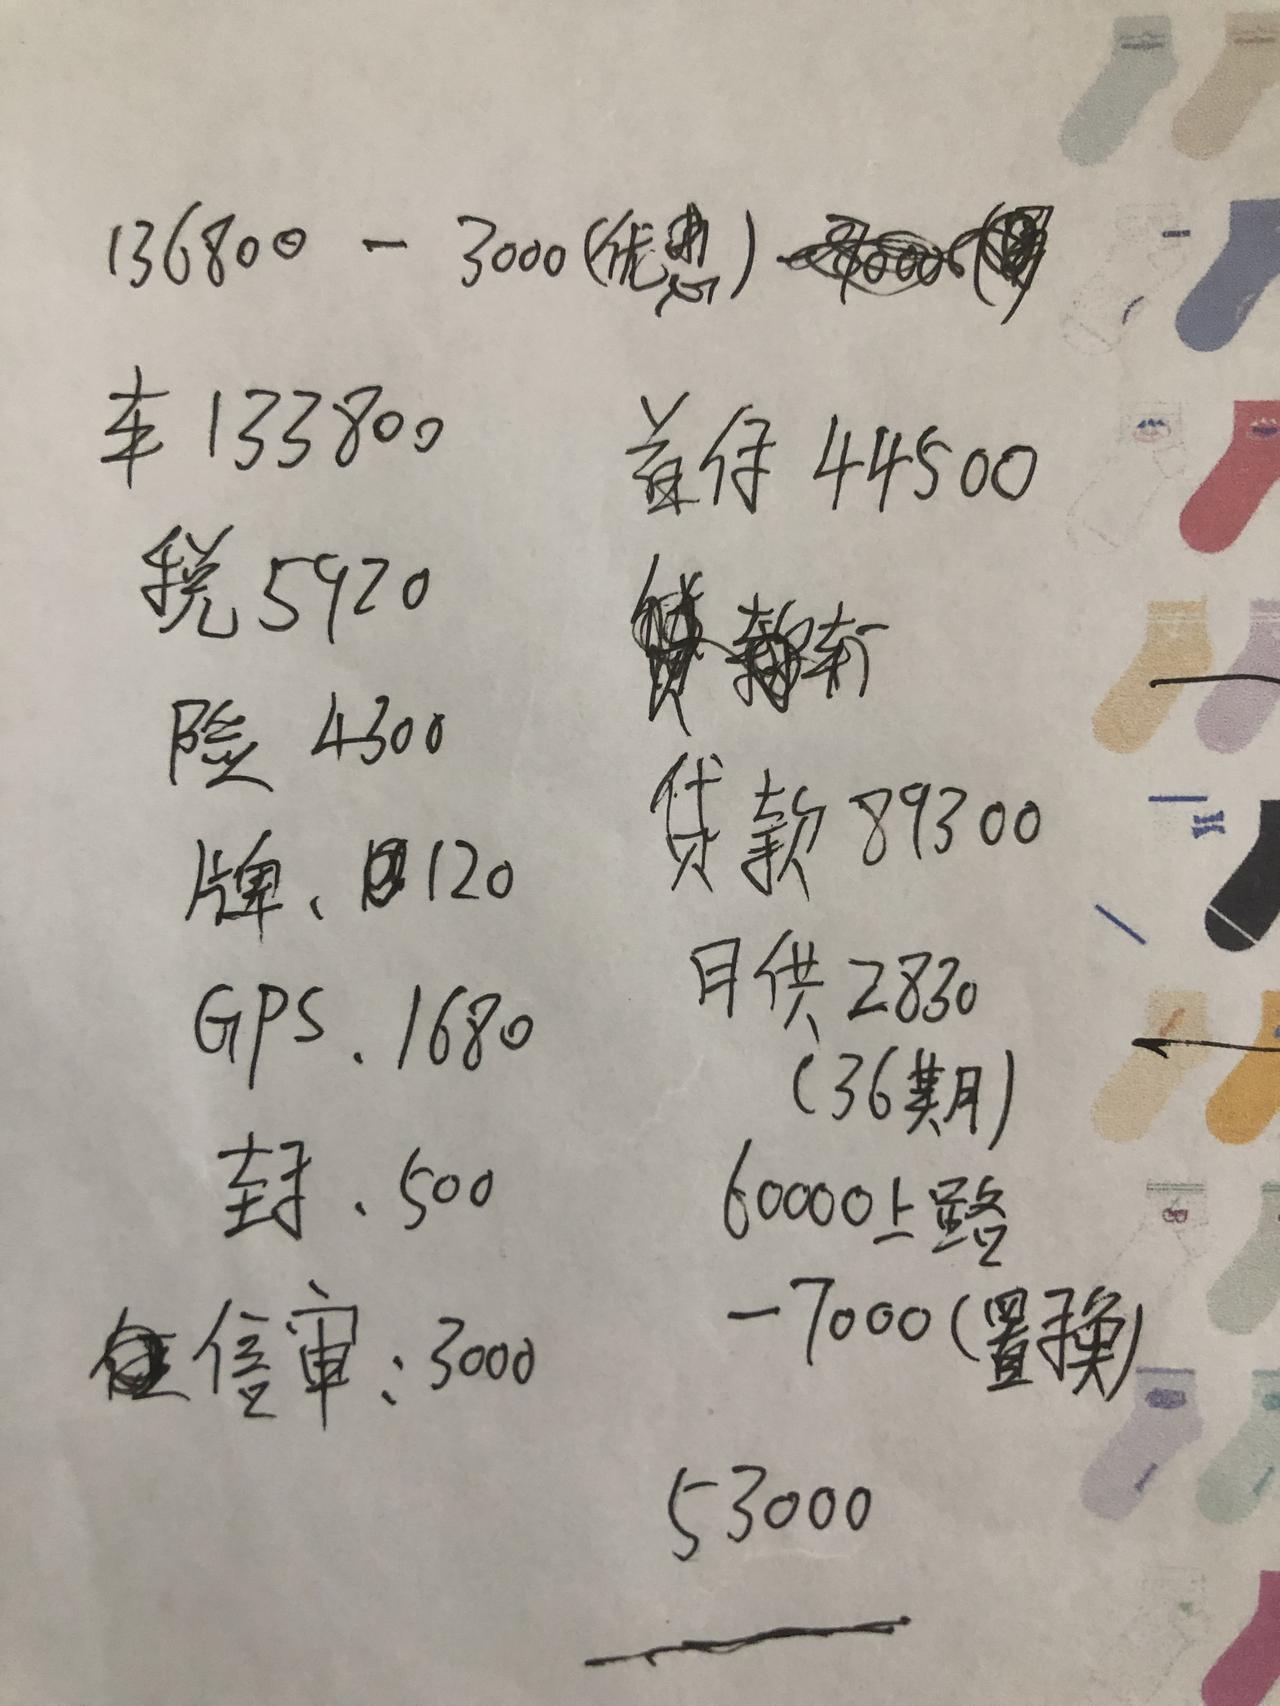 136800 - 3000(优惠)
车 133800
税 5920
险 4300
牌、120
GPS、1680
封、500
信审:3000
首付 44500
贷款 89300
月供 2830
(36期)
60000上路
-7000(置换)
53000